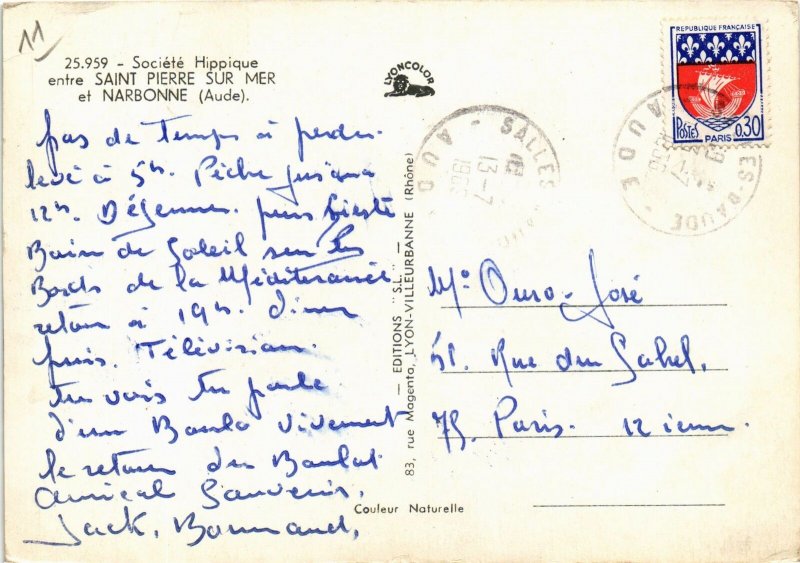 11
25.959 - Société Hippique
entre SAINT PIERRE SUR MER
et NARBONNE (Aude).
LYONCOLOR
REPUBLIQUE FRANÇAISE
POSTES PARIS 0,30
SALLES
AUDE
13-7
pas de temps à perdre
levé à 5h. Pêche jusqua
12h. Déjeuner. puis Sieste
Bain de Soleil sur les
Bords de la Méditerranée
retour à 19h. diner
puis. Télévision.
tu vois tu parle
d'un Boulo vivement
le retour du Boulot
amical Souvenir.
Jack,
EDITIONS "S.L."
83, rue Magenta, LYON-VILLEURBANNE (Rhône)
Couleur Naturelle
Mr Ouro-José
51. Rue du Sahel.
75. Paris. 12 ieme.